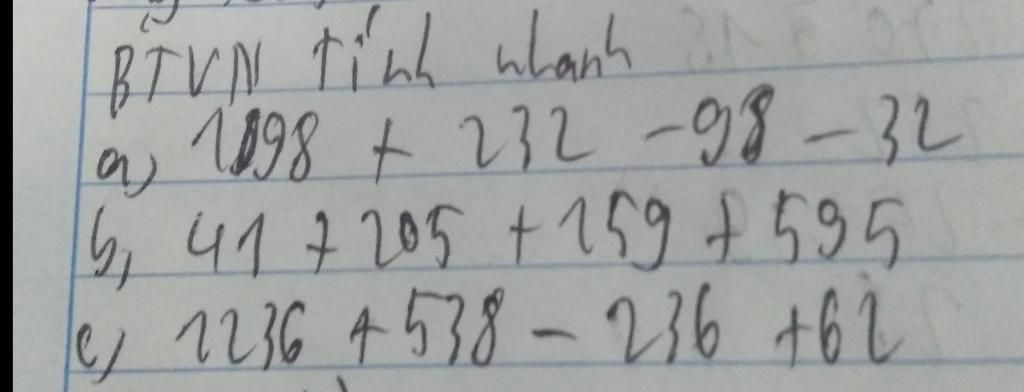 BTVN tính nhanh
a) 1098 + 232 - 98 - 32
b, 41 + 205 + 159 + 595
c) 1236 + 538 - 236 + 62